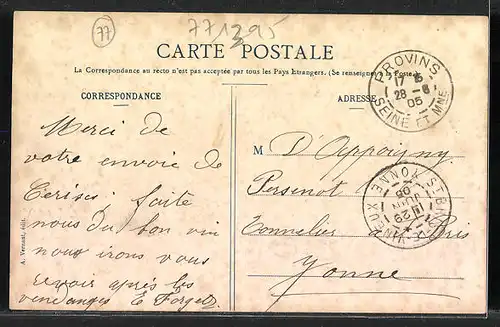 77
771395
CARTE POSTALE
La Correspondance au recto n'est pas acceptée par tous les Pays Etrangers. (Se renseigner à la Poste)
CORRESPONDANCE
ADRESSE
PROVINS
17 15
28 -6
05
SEINE ET MNE
Merci de
votre envoie de
Cerises; faite
nous du bon vin
nous irons vous
revoir après les
vendanges E. Forgets
M D'Appoigny
Persenot
Tonnelier à St Bris
Yonne
ST BRIS-LE-VINEUX
YONNE
29
JUIN
05
A. Vernant, édit.